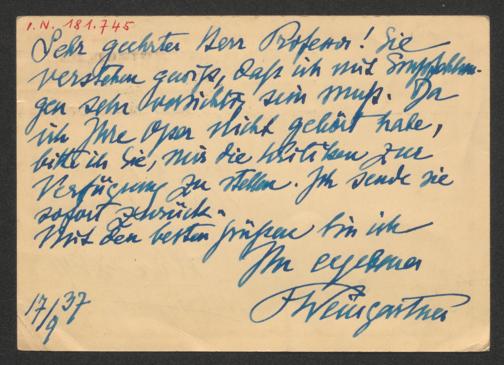 I.N. 181.745
Sehr geehrter Herr Professor! Sie
verstehen gewiß, daß ich mit Empfehlun-
gen sehr vorsichtig sein muß. Da
ich Ihre Oper nicht gehört habe,
bitte ich Sie, mir die Kritiken zur
Verfügung zu stellen. Ich sende sie
sofort zurück.
Mit den besten Grüßen bin ich
Ihr ergebener
FWeingartner
17/9 37